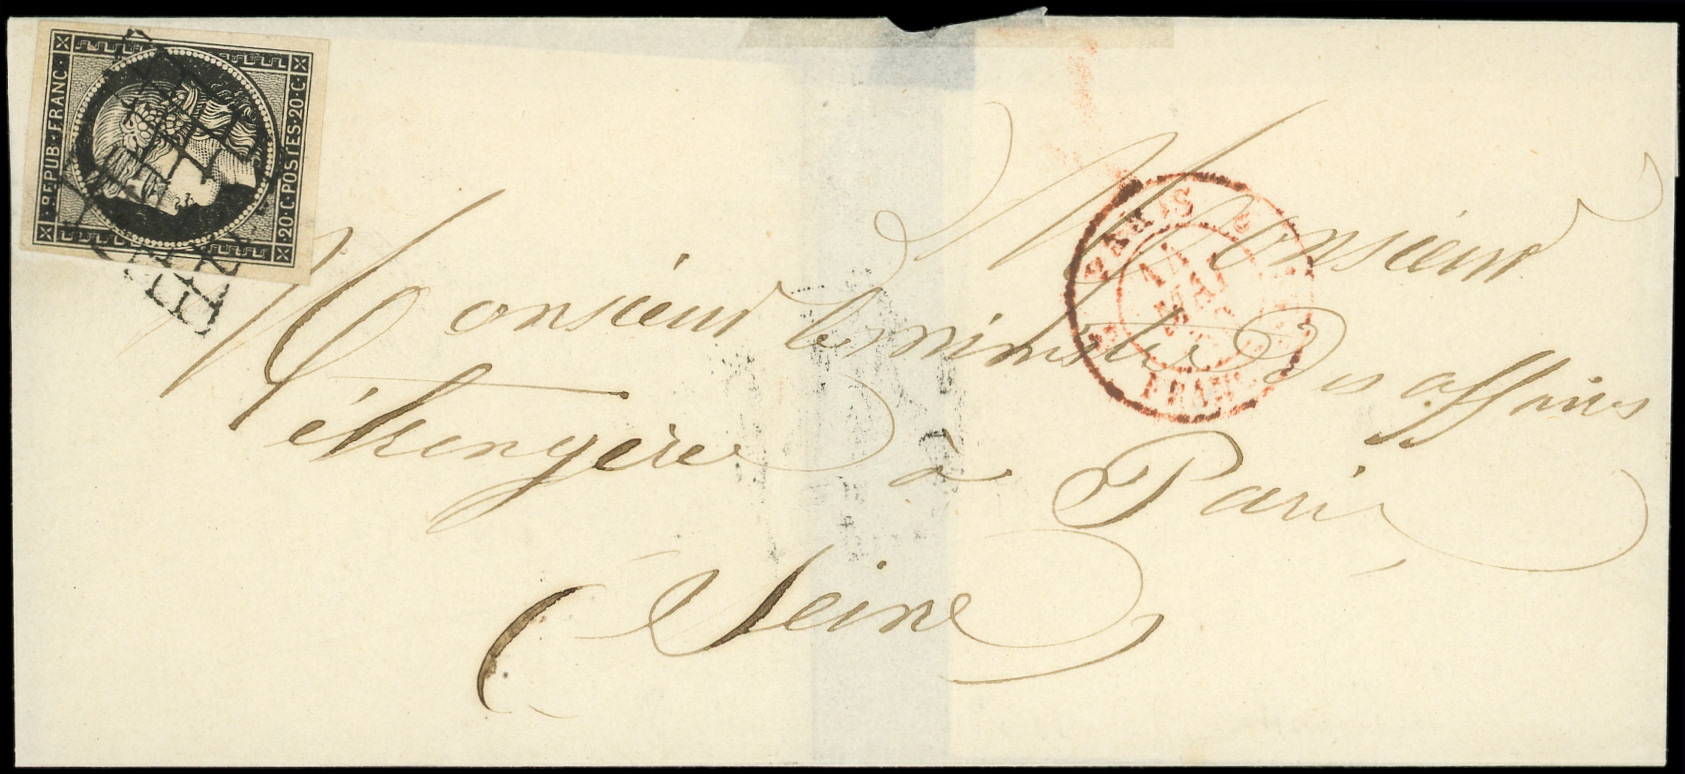 REPUB·FRANC·
20·C·POSTES·20·C·
Monsieur
Monsieur le ministre des affaires
étrangère à Paris
Seine
PARIS
14
MAI